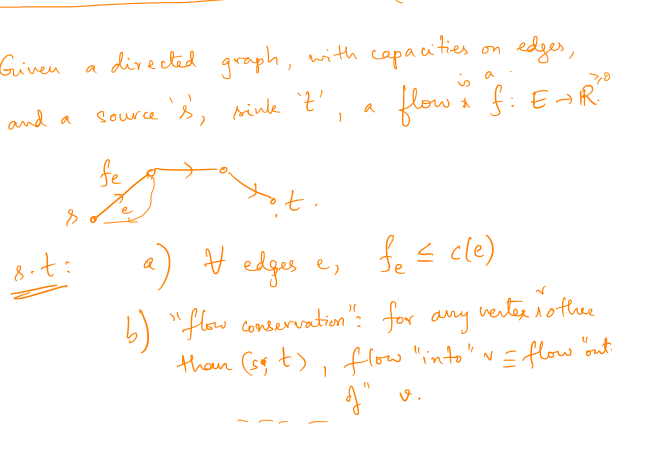 Given a directed graph, with capacities on edges,
and a source 's', sink 't', a flow is a f : E → ℝ≥0.
fe
s e t.
s.t: a) ∀ edges e, fe ≤ c(e)
b) "flow conservation": for any vertex v other
than (s, t), flow "into" v = flow "out
of" v.